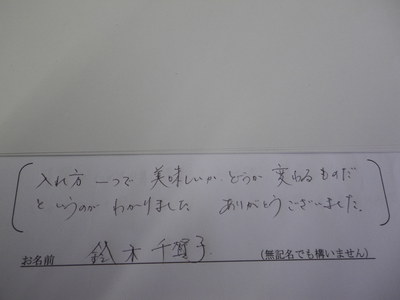 入れ方一つで 美味しいか.どうか 変わるものだ
というのが わかりました ありがとうございました.
お名前 鈴木千賀子 (無記名でも構いません)